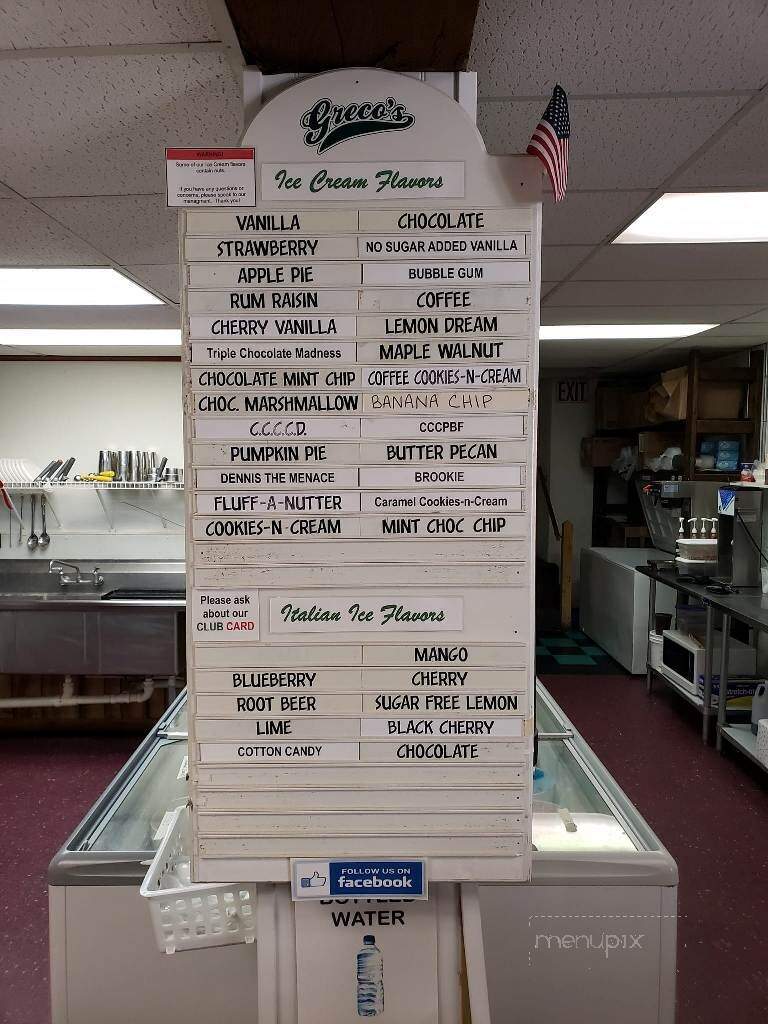 Greco's
WARNING!
Some of our Ice Cream flavors
contain nuts.
If you have any questions or
concerns, please speak to our
management. Thank you!
Ice Cream Flavors
VANILLA CHOCOLATE
STRAWBERRY NO SUGAR ADDED VANILLA
APPLE PIE BUBBLE GUM
RUM RAISIN COFFEE
CHERRY VANILLA LEMON DREAM
Triple Chocolate Madness MAPLE WALNUT
CHOCOLATE MINT CHIP COFFEE COOKIES-N-CREAM
CHOC. MARSHMALLOW BANANA CHIP
C.C.C.C.D. CCCPBF
PUMPKIN PIE BUTTER PECAN
DENNIS THE MENACE BROOKIE
FLUFF-A-NUTTER Caramel Cookies-n-Cream
COOKIES-N-CREAM MINT CHOC CHIP
Please ask
about our
CLUB CARD
Italian Ice Flavors
MANGO
BLUEBERRY CHERRY
ROOT BEER SUGAR FREE LEMON
LIME BLACK CHERRY
COTTON CANDY CHOCOLATE
FOLLOW US ON
facebook
BOTTLED
WATER
EXIT
menupix